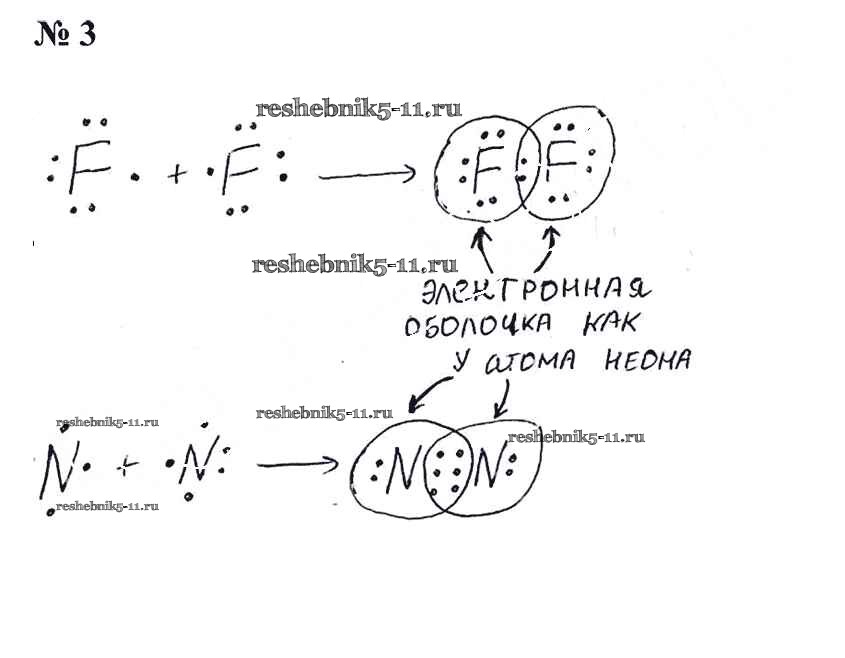 № 3
reshebnik5-11.ru
F + F → F F
reshebnik5-11.ru
ЭЛЕКТРОННАЯ
ОБОЛОЧКА КАК
У АТОМА НЕОНА
reshebnik5-11.ru
reshebnik5-11.ru
reshebnik5-11.ru
N + N → N N
reshebnik5-11.ru